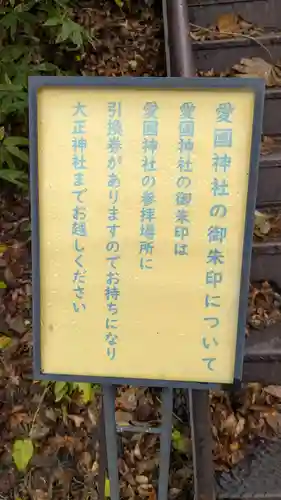 愛国神社の御朱印について
愛国神社の御朱印は
愛国神社の参拝場所に
引換券がありますのでお持ちになり
大正神社までお越しください